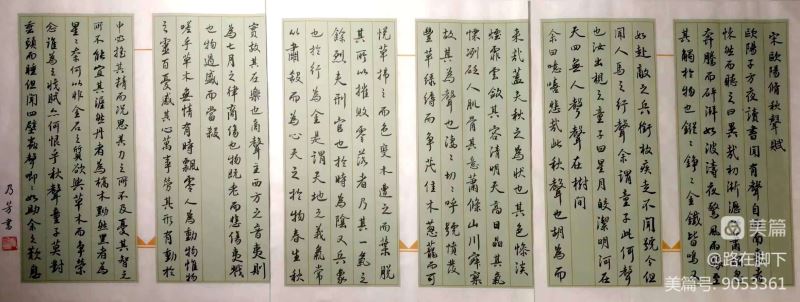 宋歐陽脩秋聲賦
歐陽子方夜讀書聞有聲自南來
悚然而聽之曰異哉初淅瀝以蕭
奔騰而砰湃如波濤夜驚風雨
其觸於物也鏦〻錚〻金鐵皆鳴又
如赴敵之兵銜枚疾走不聞號令但
聞人馬之行聲余謂童子此何聲
也汝出視之童子曰星月皎潔明河在
天四無人聲聲在樹間
余曰噫嘻悲哉此秋聲也胡為而
來哉蓋夫秋之為狀也其色慘淡
煙霏雲斂其容清明天高日晶其氣
慄冽砭人肌骨其意蕭條山川寂寥
故其為聲也淒〻切〻呼號憤發
豐草綠縟而爭茂佳木蔥蘢而可
悅草拂之而色變木遭之而葉脫
其所以摧敗零落者乃其一氣之
餘烈夫刑官也於時為陰又兵象
也於行為金是謂天地之義氣常
以肅殺而為心天之於物春生秋
實故其在樂也商聲主西方之音夷則
為七月之律商傷也物既老而悲傷夷戮
也物過盛而當殺
嗟乎草木無情有時飄零人為動物惟物
之靈百憂感其心萬事勞其形有動於
中必搖其精而況思其力之所不及憂其智之
所不能宜其渥然丹者為槁木黟然黑者為
星〻奈何以非金石之質欲與草木而爭榮
念誰為之戕賊亦何恨乎秋聲童子莫對
垂頭而睡但聞四壁蟲聲唧〻如助余之歎息
乃芳書
美篇
@路在脚下
美篇号: 9053361